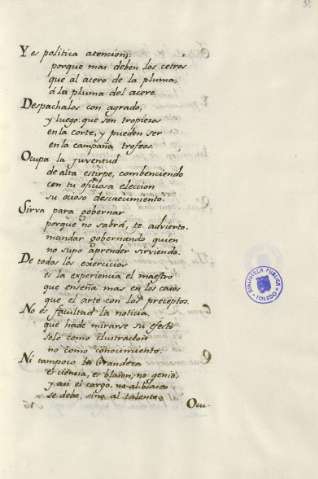 Y es politica atencion;
porque mas deben los cetros
que al acero de la pluma,
a la pluma del acero.
Despachalos con agrado,
y luego: que son tropiezos
en la corte, y pueden ser
en la campaña trofeos.
Ocupa la juventud
de alta estirpe, combeniendo
con tu oficiosa eleccion
su ocioso
Sirva para gobernar
porque no sabrá, te advierto,
mandar gobernando quien
no supo aprender sirviendo.
De todos los exercicios
es la experiencia el maestro
que enseña mas en los casos
que el arte con los preceptos.
No es facultad la noticia,
que hade mirarse su efecto
solo como ilustracion
no como conocimiento.
Ni tampoco la Grandeza
es ciencia, es blason, no genio;
y asi el cargo, no al
se debe, sino al talento.
Ocu-
BIBLIOTECA PUBLICA
TOLEDO